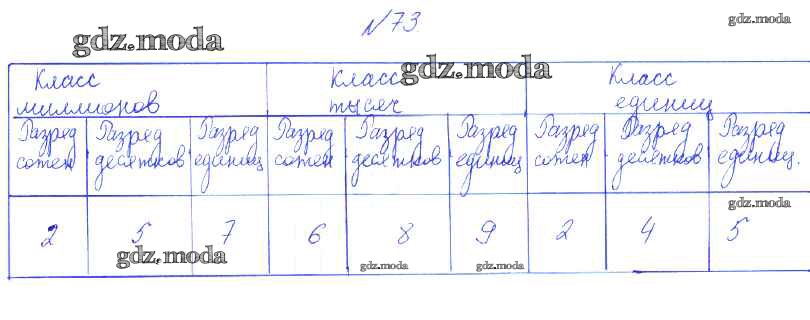 №73
gdz.moda
gdz.moda
gdz.moda
Класс миллионов
Класс тысяч
Класс единиц
Разряд сотен
Разряд десятков
Разряд единиц
Разряд сотен
Разряд десятков
Разряд единиц
Разряд сотен
Разряд десятков
Разряд единиц.
gdz.moda
2 5 7 6 8 9 2 4 5
gdz.moda
gdz.moda
gdz.moda